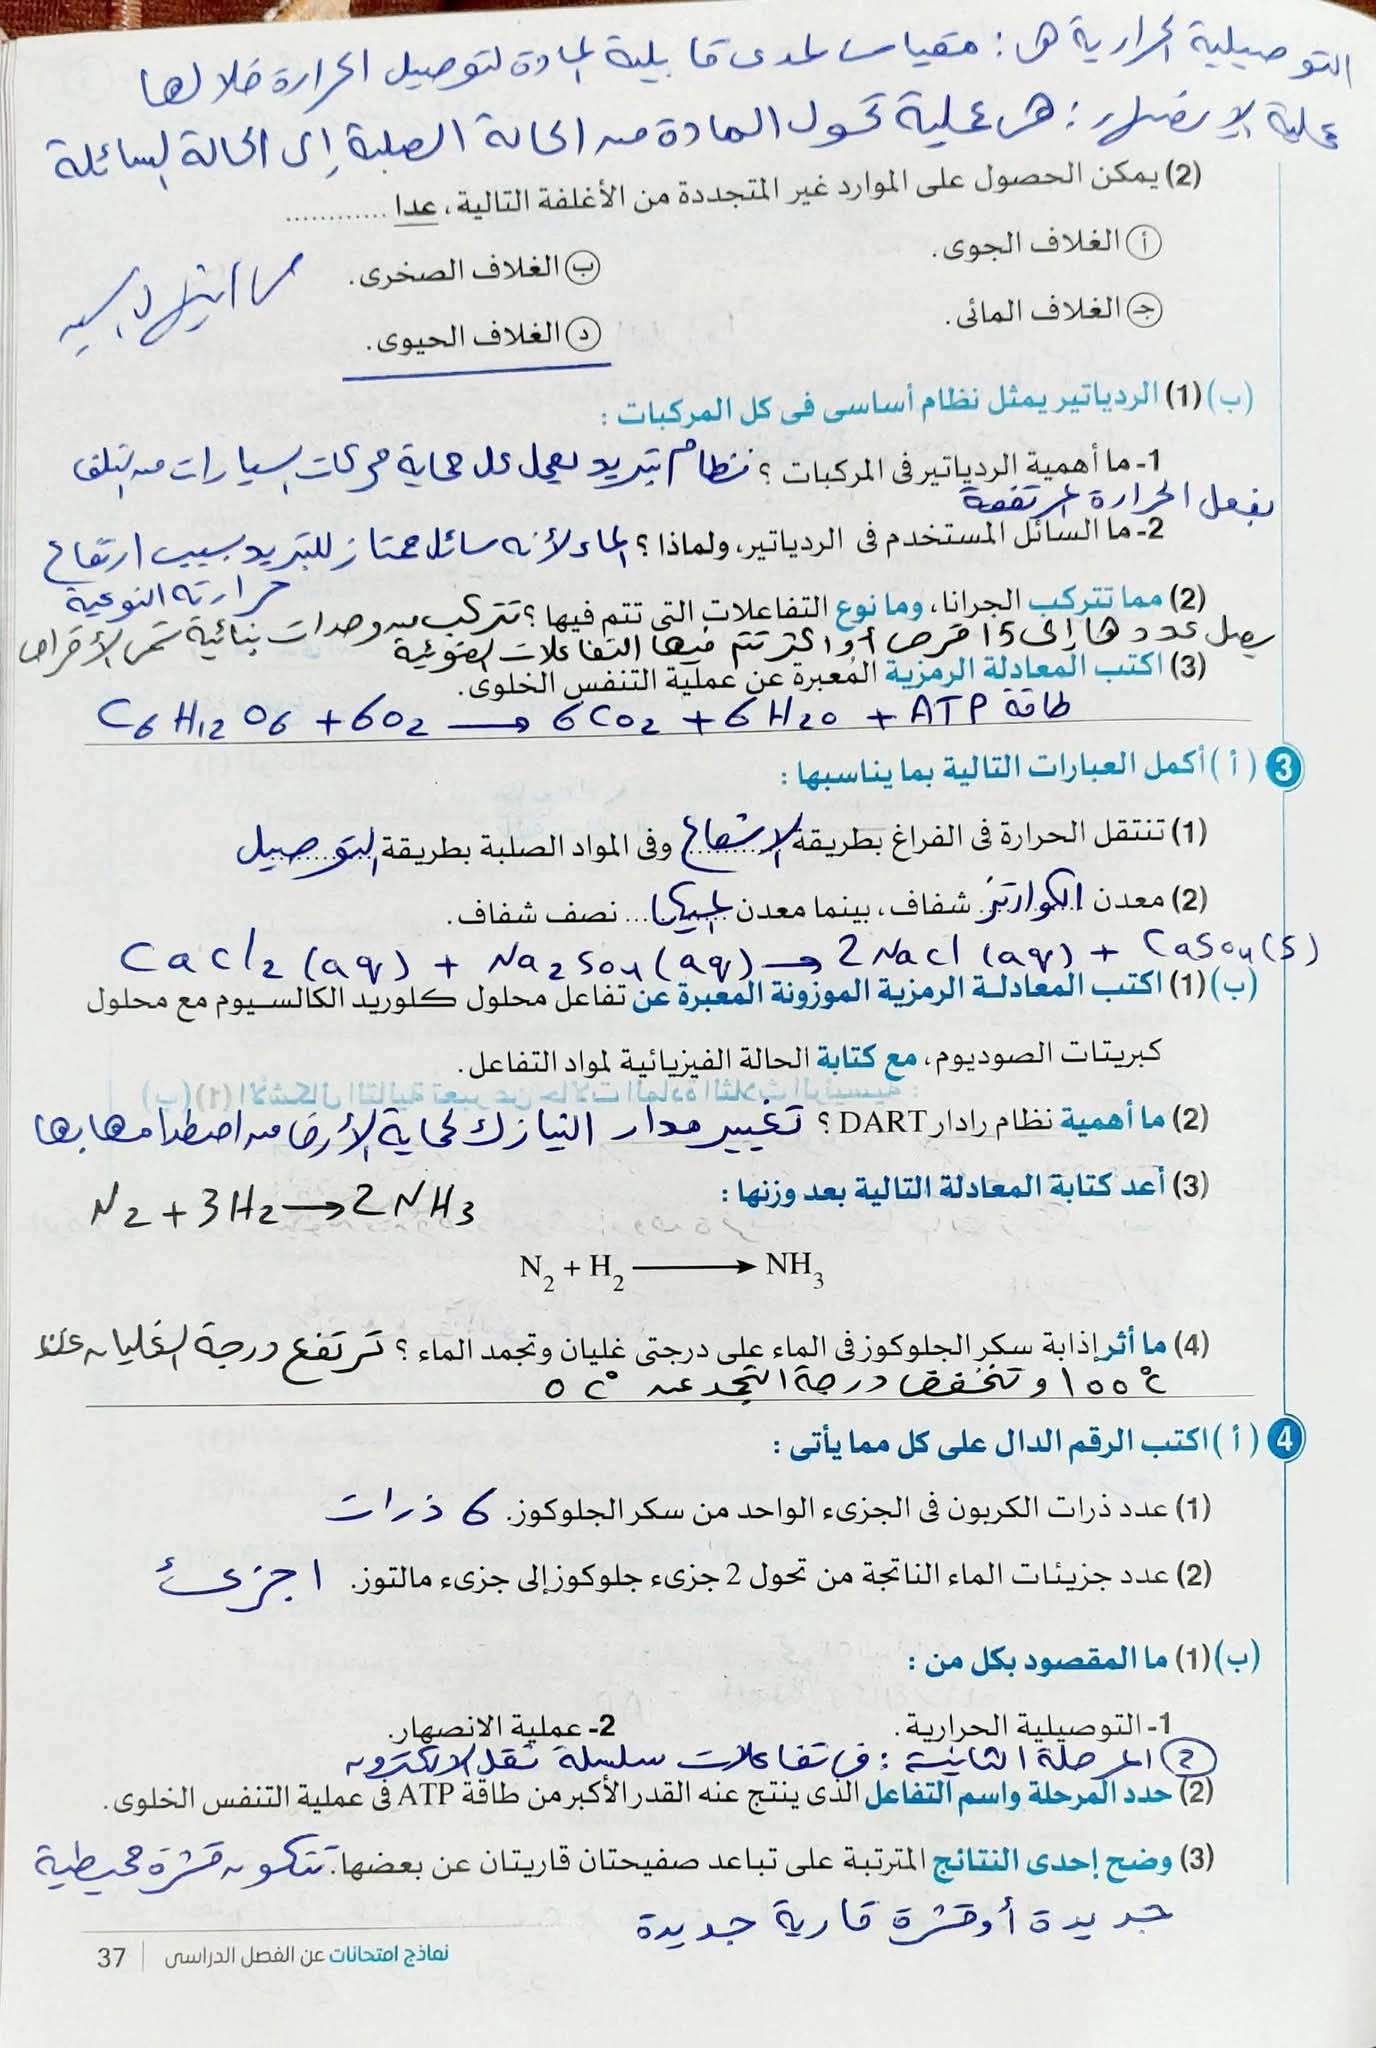 التوصيلية الحرارية هى: مقياس لمدى قابلية المادة لتوصيل الحرارة خلالها
عملية الانصهار: هى عملية تحول المادة من الحالة الصلبة إلى الحالة السائلة
(2) يمكن الحصول على الموارد غير المتجددة من الأغلفة التالية، عدا ............
أ الغلاف الجوى.
ب الغلاف الصخرى.
جـ الغلاف المائى.
د الغلاف الحيوى.
(ب) (1) الردياتير يمثل نظام أساسى فى كل المركبات :
1- ما أهمية الردياتير فى المركبات ؟ نظام تبريد يعمل على حماية محركات السيارات من التلف
بفعل الحرارة المرتفعة
2- ما السائل المستخدم فى الردياتير، ولماذا ؟ الماء لأنه سائل ممتاز للتبريد بسبب ارتفاع
حرارته النوعية
(2) مما تتركب الجرانا، وما نوع التفاعلات التى تتم فيها ؟ تتركب من وحدات بنائية تسمى الأقراص
يصل عددها إلى 15 قرص أو اكثر تتم فيها التفاعلات الضوئية
(3) اكتب المعادلة الرمزية المُعبرة عن عملية التنفس الخلوى.
C6 H12 O6 + 6O2 → 6CO2 + 6H2O + ATP طاقة
3 (أ) أكمل العبارات التالية بما يناسبها :
(1) تنتقل الحرارة فى الفراغ بطريقة الاشعاع وفى المواد الصلبة بطريقة التوصيل
(2) معدن الكوارتز شفاف، بينما معدن الميكا نصف شفاف.
CaCl2 (aq) + Na2SO4 (aq) → 2NaCl (aq) + CaSO4 (s)
(ب) (1) اكتب المعادلة الرمزية الموزونة المعبرة عن تفاعل محلول كلوريد الكالسيوم مع محلول
كبريتات الصوديوم، مع كتابة الحالة الفيزيائية لمواد التفاعل.
(2) ما أهمية نظام رادار DART ؟ تغيير مدار النيازك لحماية الأرض من اصطدامها بها
(3) أعد كتابة المعادلة التالية بعد وزنها :
N2 + 3H2 → 2NH3
N2 + H2 → NH3
(4) ما أثر إذابة سكر الجلوكوز فى الماء على درجتى غليان وتجمد الماء ؟ ترتفع درجة الغليان عن
100°C وتنخفض درجة التجمد عن 0°C
4 (أ) اكتب الرقم الدال على كل مما يأتى :
(1) عدد ذرات الكربون فى الجزىء الواحد من سكر الجلوكوز. 6 ذرات
(2) عدد جزيئات الماء الناتجة من تحول 2 جزىء جلوكوز إلى جزىء مالتوز. 1 جزئ
(ب) (1) ما المقصود بكل من :
1- التوصيلية الحرارية.
2- عملية الانصهار.
2 المرحلة الثانية : فى تفاعلات سلسلة نقل الالكترون
(2) حدد المرحلة واسم التفاعل الذى ينتج عنه القدر الأكبر من طاقة ATP فى عملية التنفس الخلوى.
(3) وضح إحدى النتائج المترتبة على تباعد صفيحتان قاريتان عن بعضها. تتكون قشرة محيطية
جديدة أو قشرة قارية جديدة
نماذج امتحانات عن الفصل الدراسى | 37